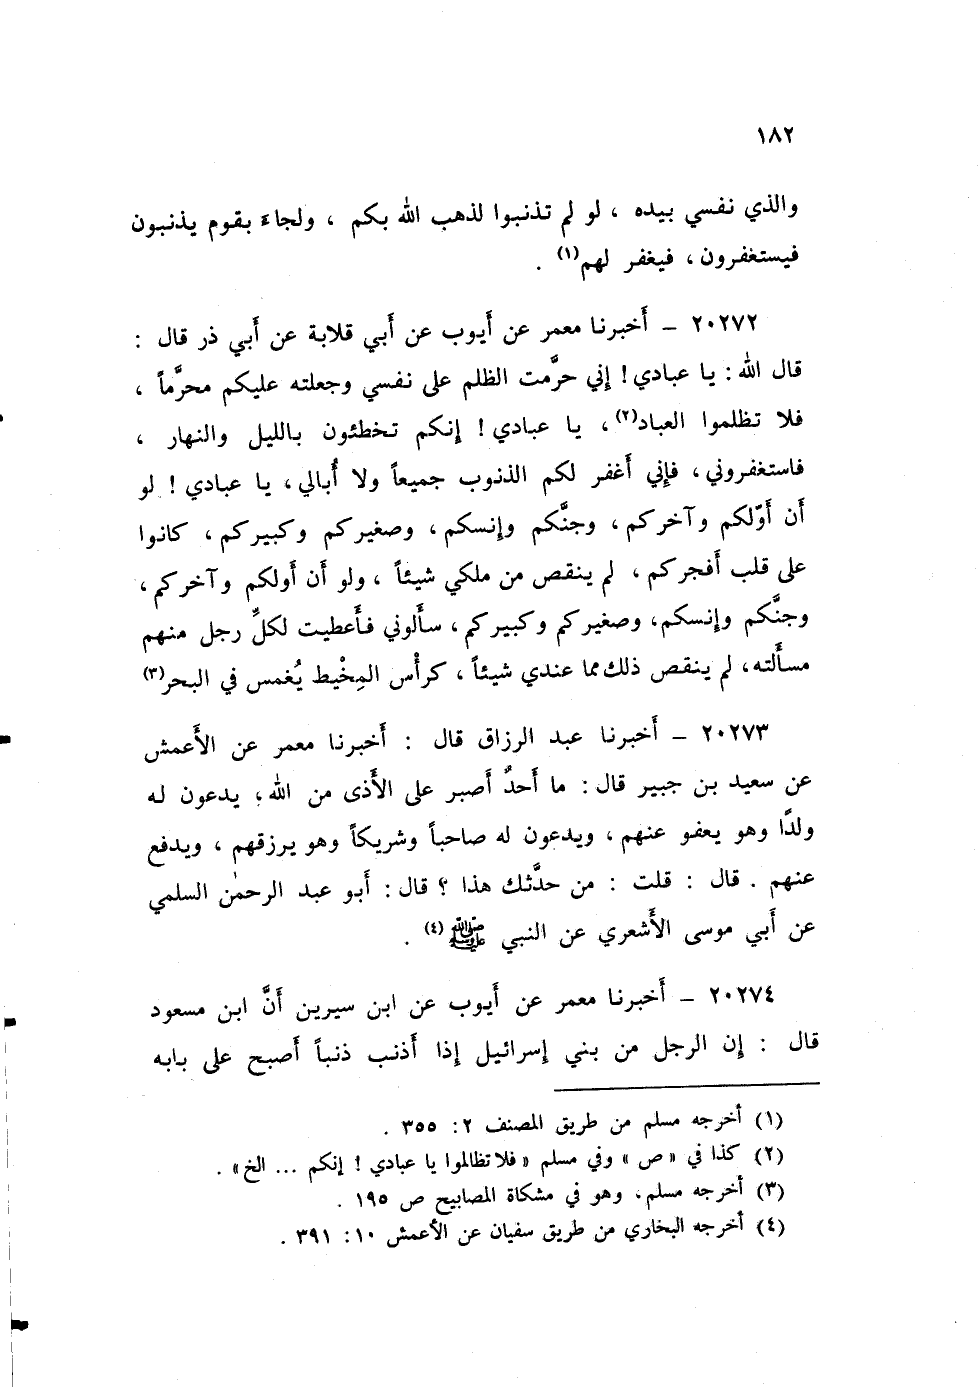 ١٨٢
والذي نفسي بيده ، لو لم تذنبوا لذهب الله بكم ، ولجاء بقوم يذنبون
فيستغفرون ، فيغفر لهم(١) .
٢٠٢٧٢ – أخبرنا معمر عن أيوب عن أبي قلابة عن أبي ذر قال :
قال الله : يا عبادي ! إني حرَّمت الظلم على نفسي وجعلته عليكم محرَّماً ،
فلا تظلموا العباد(٢) ، يا عبادي ! إنكم تخطئون بالليل والنهار ،
فاستغفروني ، فإني أغفر لكم الذنوب جميعاً ولا أُبالي ، يا عبادي ! لو
أن أوّلكم وآخركم ، وجنَّكم وإنسكم ، وصغيركم وكبيركم ، كانوا
على قلب أفجركم ، لم ينقص من ملكي شيئاً ، ولو أن أولكم وآخركم ،
وجنَّكم وإنسكم ، وصغيركم وكبيركم ، سألوني فأعطيت لكلِّ رجل منهم
مسألته ، لم ينقص ذلك مما عندي شيئاً ، كرأْس المِخْيط يُغمس في البحر(٣)
٢٠٢٧٣ – أخبرنا عبد الرزاق قال : أخبرنا معمر عن الأعمش
عن سعيد بن جبير قال : ما أحدٌ أصبر على الأذى من الله ، يدعون له
ولدًا وهو يعفو عنهم ، ويدعون له صاحباً وشريكاً وهو يرزقهم ، ويدفع
عنهم . قال : قلت : من حدَّثك هذا ؟ قال : أبو عبد الرحمٰن السلمي
عن أبي موسى الأشعري عن النبي ﷺ(٤) .
٢٠٢٧٤ – أخبرنا معمر عن أيوب عن ابن سيرين أنَّ ابن مسعود
قال : إن الرجل من بني إسرائيل إذا أذنب ذنباً أصبح على بابه
(١) أخرجه مسلم من طريق المصنف ٢ : ٣٥٥ .
(٢) كذا في «ص» وفي مسلم «فلا تظالموا يا عبادي ! إنكم ... الخ» .
(٣) أخرجه مسلم، وهو في مشكاة المصابيح ص ١٩٥ .
(٤) أخرجه البخاري من طريق سفيان عن الأعمش ١٠ : ٣٩١ .